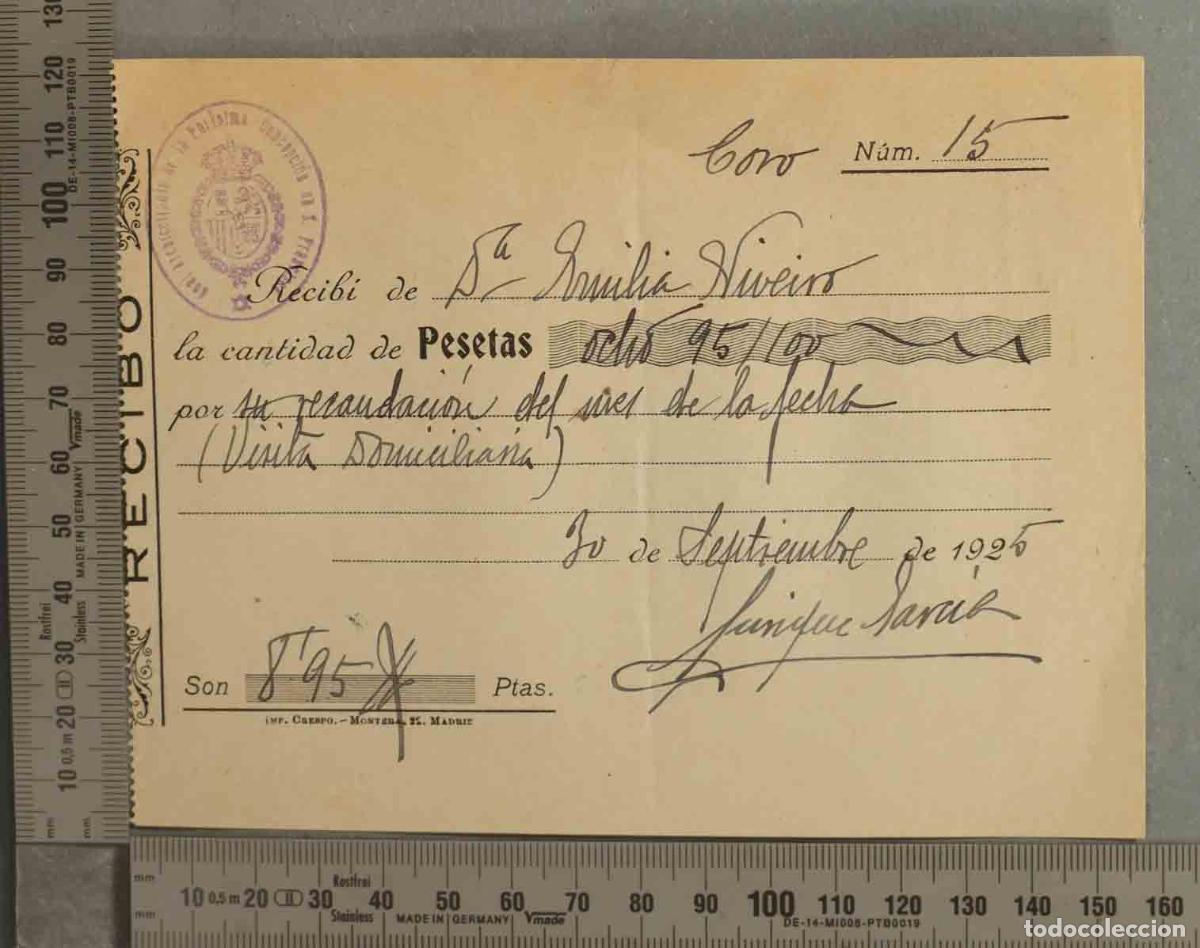 Coro Núm. 15
Real Archicofradía de la Purísima Concepción en S. Fran
Recibí de Dª Emilia Viveiro
la cantidad de Pesetas ocho 95/100
por su recaudación del mes de la fecha
(Visita Domiciliaria)
30 de Septiembre de 1925
Enrique García
Son 8'95 Ptas.
IMP. CRESPO.—MONTERA, MADRID
RECIBO
130
120
110
100
90
80
70
60
50
40
30
20
10 0,5 m
DE-14-MI008-PTB0019
Vmade
MADE IN GERMANY
Rostfrei
Stainless
mm
mm
mm
mm
10 0,5 m 20 30 40 50 60 70 80 90 100 110 120 130 140 150 160
Rostfrei
Stainless
MADE IN GERMANY
Vmade
DE-14-MI008-PTB0019
todocoleccion